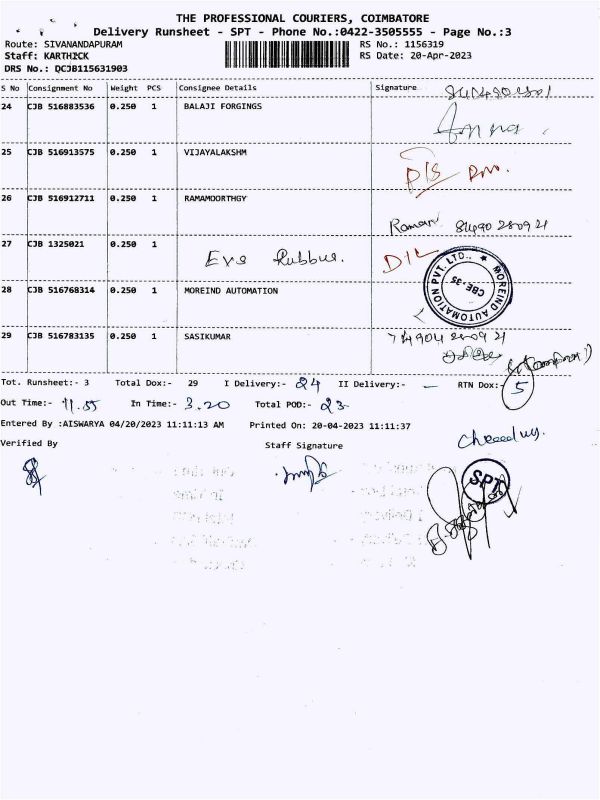 THE PROFESSIONAL COURIERS, COIMBATORE
Delivery Runsheet - SPT - Phone No.:0422-3505555 - Page No.:3
Route: SIVANANDAPURAM
RS No.: 1156319
Staff: KARTHICK
RS Date: 20-Apr-2023
DRS No.: DCJB115631903
S No Consignment No Weight PCS Consignee Details Signature
24 CJB 516883536 0.250 1 BALAJI FORGINGS
25 CJB 516913575 0.250 1 VIJAYALAKSHM
26 CJB 516912711 0.250 1 RAMAMOORTHGY
Raman
27 CJB 1325021 0.250 1
D/L
28 CJB 516768314 0.250 1 MOREIND AUTOMATION
MOREIND AUTOMATION PVT. LTD., ★ CBE-35
29 CJB 516783135 0.250 1 SASIKUMAR
Tot. Runsheet:- 3 Total Dox:- 29 I Delivery:- 24 II Delivery:- — RTN Dox:- 5
Out Time:- 11.55 In Time:- 3.20 Total POD:- 23
Entered By :AISWARYA 04/20/2023 11:11:13 AM Printed On: 20-04-2023 11:11:37
Verified By Staff Signature
SPT